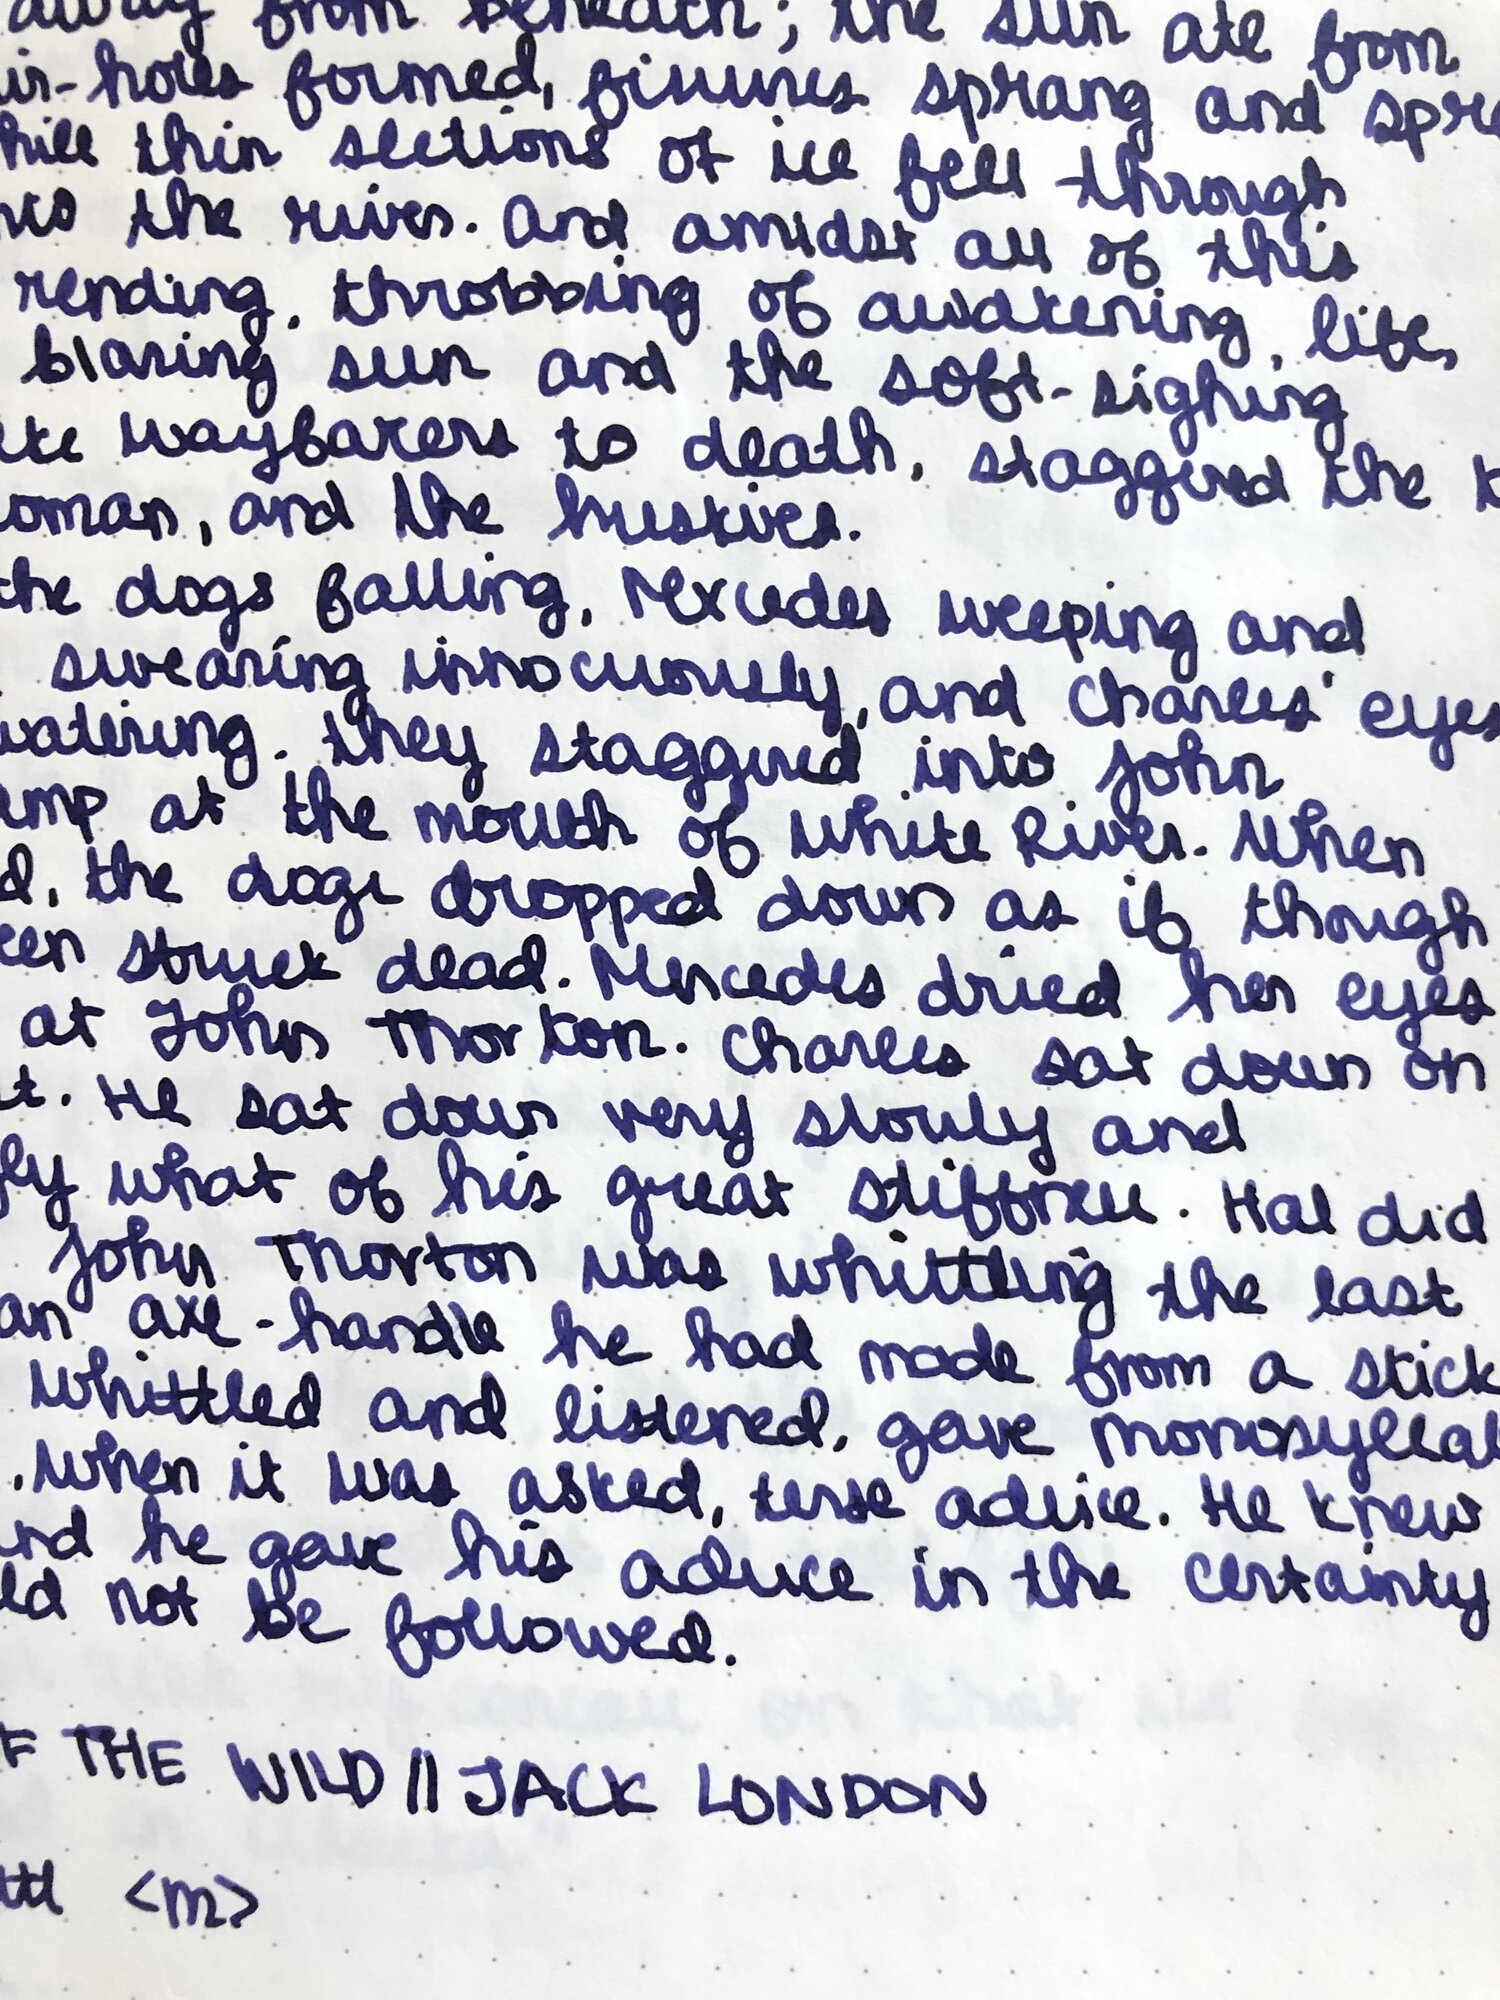 away from beneath; the sun ate from
ir-holes formed, fissures sprang and spre
hile thin sections of ice fell through
nto the river. And amidst all of this
rending, throbbing of awakening, life,
blazing sun and the soft-sighing
ike wayfarers to death, staggered the t
oman, and the huskies.
the dogs falling, Mercedes weeping and
swearing innocuously, and Charles' eyes
watering. they staggered into John
amp at the mouth of White River. When
d, the dogs dropped down as if though
een struck dead. Mercedes dried her eyes
at John Thorton. Charles sat down on
t. He sat down very slowly and
ly what of his great stiffness. Hal did
John Thorton was whittling the last
an axe-handle he had made from a stick
whittled and listened, gave monosyllab
. When it was asked, terse advice. He knew
and he gave his advice in the certainty
ld not be followed.
F THE WILD // JACK LONDON
<M>